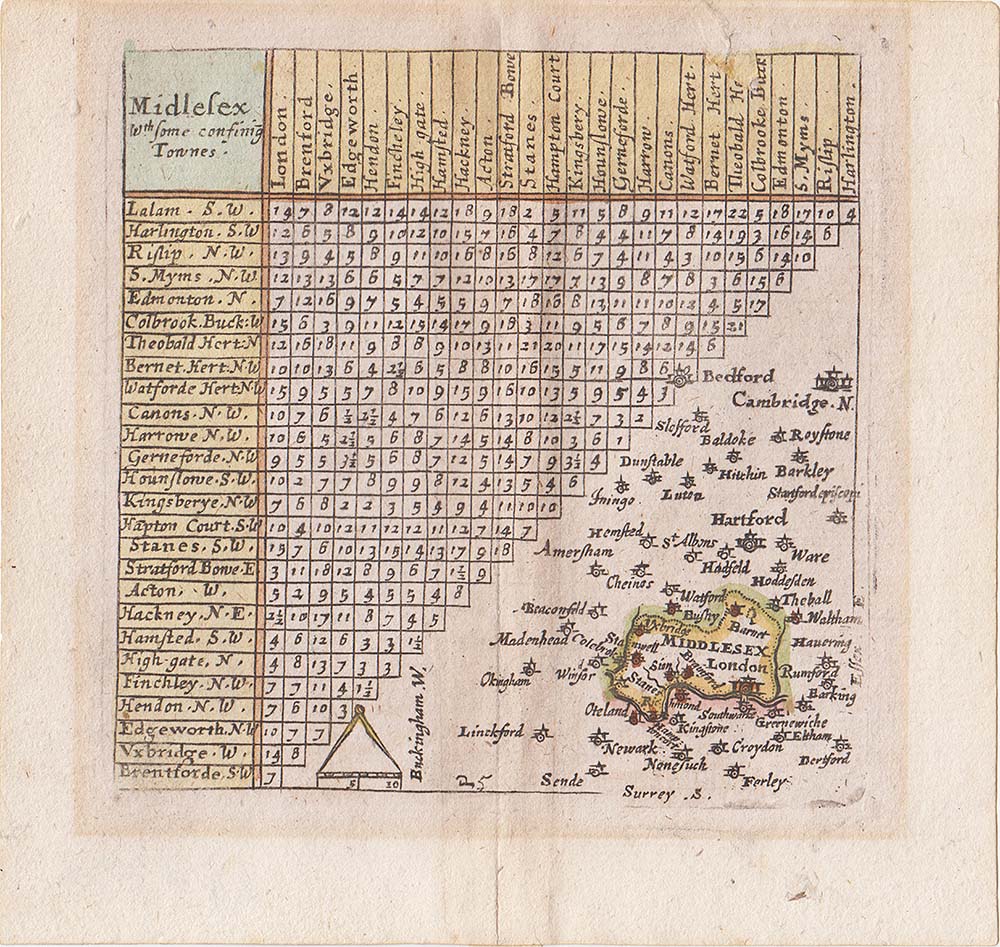 Midlesex
Wth some confinig
Townes.
London.
Brentford
Vxbridge.
Edgeworth
Hendon.
Fincherley.
High gate
Hamsted.
Hackney.
Acton
Stratford Bowe
Stanes.
Hampton Court
Kingsbery.
Hounslowe.
Gerneforde.
Harrow.
Canons.
Watford Hert.
Bernet Hert
Theobald He
Colbrooke Buck
Edmonton
S. Myms.
Rislip.
Harlington.
Lalam. S.W. 14 7 8 12 12 14 14 12 18 9 18 2 5 11 5 8 9 11 12 17 22 5 18 17 10 4
Harlington. S.W 12 6 5 8 9 10 12 10 15 7 16 4 7 8 4 4 11 7 8 14 19 3 16 14 6
Rislip. N.W. 13 9 4 5 8 9 11 10 16 8 16 8 12 6 7 4 11 4 3 10 15 6 14 10
S. Myms. N.W. 12 13 13 6 6 5 7 7 12 10 13 17 17 7 13 9 8 7 8 3 6 15 6
Edmonton. N. 7 12 16 9 7 5 4 5 5 9 7 18 16 8 12 11 11 10 12 4 5 17
Colbrook. Buck:W 15 6 3 9 11 12 15 14 17 9 18 3 11 9 5 6 7 8 9 15 21
Theobald Hert:N 12 16 18 11 9 8 8 9 10 13 11 21 20 11 17 15 14 12 14 6
Bernet. Hert.N.W 10 10 13 6 4 2½ 6 5 8 8 10 16 15 5 11 9 8 6
Watforde Hert.N.W 15 9 5 5 7 8 10 9 15 9 16 10 13 5 9 5 4 3
Canons. N.W. 10 7 6 ½ 2½ 4 7 6 12 6 13 10 12 2½ 7 3 2
Harrowe N.W. 10 6 5 2½ 5 6 8 7 14 5 14 8 10 3 6 1
Gerneforde. N.W 9 5 5 3½ 5 6 8 7 12 5 14 7 9 3½ 4
Hounslowe. S.W. 10 2 7 7 8 9 9 8 12 4 13 5 4 6
Kingsberye. N.W 7 6 8 2 2 3 5 4 9 4 11 10 10
Hapton Court. S.W 10 4 10 12 11 12 12 11 12 7 14 7
Stanes. S.W. 15 7 6 10 13 15 14 13 17 9 18
Stratford Bowe. E 3 11 18 12 8 9 6 7 1½ 9
Acton. W. 5 2 9 5 4 5 5 4 8
Hackney. N.E. 2½ 10 17 11 8 7 4 5
Hamsted. S.W. 4 6 12 6 3 3 1½
High-gate. N. 4 8 13 7 3 3
Finchley. N.W. 7 7 11 4 1½
Hendon. N.W. 7 6 10 3
Edgeworth. N.W 10 7 7
Vxbridge. W. 14 8
Brentforde. S.W 7
5 10
Buckingham W.
25
Bedford
Cambridge. N.
Slefford
Baldoke
Roystone
Dunstable
Hitchin
Barkley
Iningo.
Luton
Startford episcopi
Hartford
Hemsted
St Albons
Ware
Amersham
Hadfeld
Cheinos
Hoddesden
Watford
Theball
Beaconfeld
Bushy
Waltham
Vxbridge
Barnet
Madenhead
Colebrok
Stanwell
MIDDLESEX
Hauering
Essex E
London
Okingham
Winsor
Sion
Brainford
Rumford
Stanes
Barking
Oteland
Southwarke
Greenewiche
Linckford
Kingstone
Eltham
Newark
Nonesuch
Croydon
Dertford
Sende
Ferley
Surrey. S.